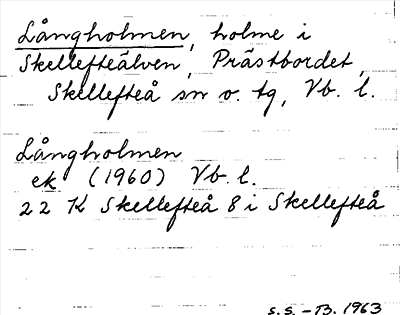 Långholmen, holme i
Skellefteälven, Prästbordet,
Skellefteå sn o. tg, Vb. l.
Långholmen
ek (1960) Vb. l.
22 K Skellefteå 8 i Skellefteå
S.S. - B. 1963